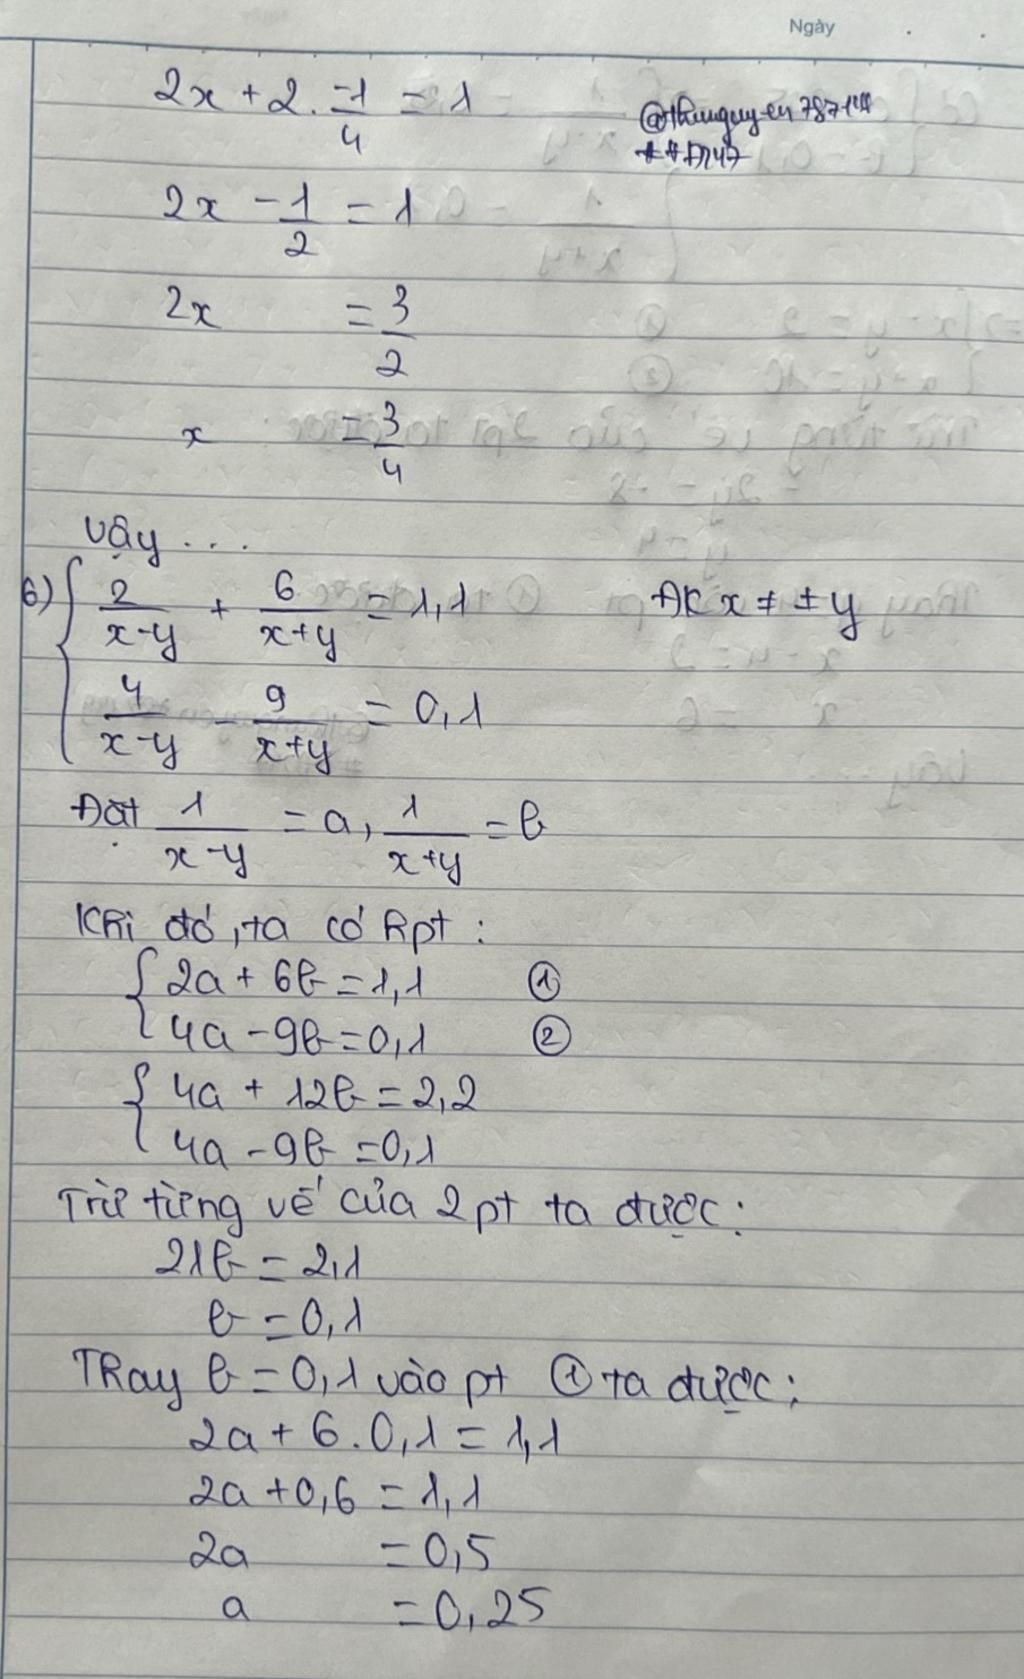 Ngày
2x + 2 . -1/4 = 1
2x - 1/2 = 1
2x = 3/2
x = 3/4
Vậy ...
6) { 2/(x-y) + 6/(x+y) = 1,1 ĐK x ≠ ±y
4/(x-y) - 9/(x+y) = 0,1
Đặt 1/(x-y) = a, 1/(x+y) = b
Khi đó, ta có hpt :
{ 2a + 6b = 1,1 ①
4a - 9b = 0,1 ②
{ 4a + 12b = 2,2
4a - 9b = 0,1
Trừ từng vế của 2 pt ta được:
21b = 2,1
b = 0,1
Thay b = 0,1 vào pt ① ta được:
2a + 6 . 0,1 = 1,1
2a + 0,6 = 1,1
2a = 0,5
a = 0,25